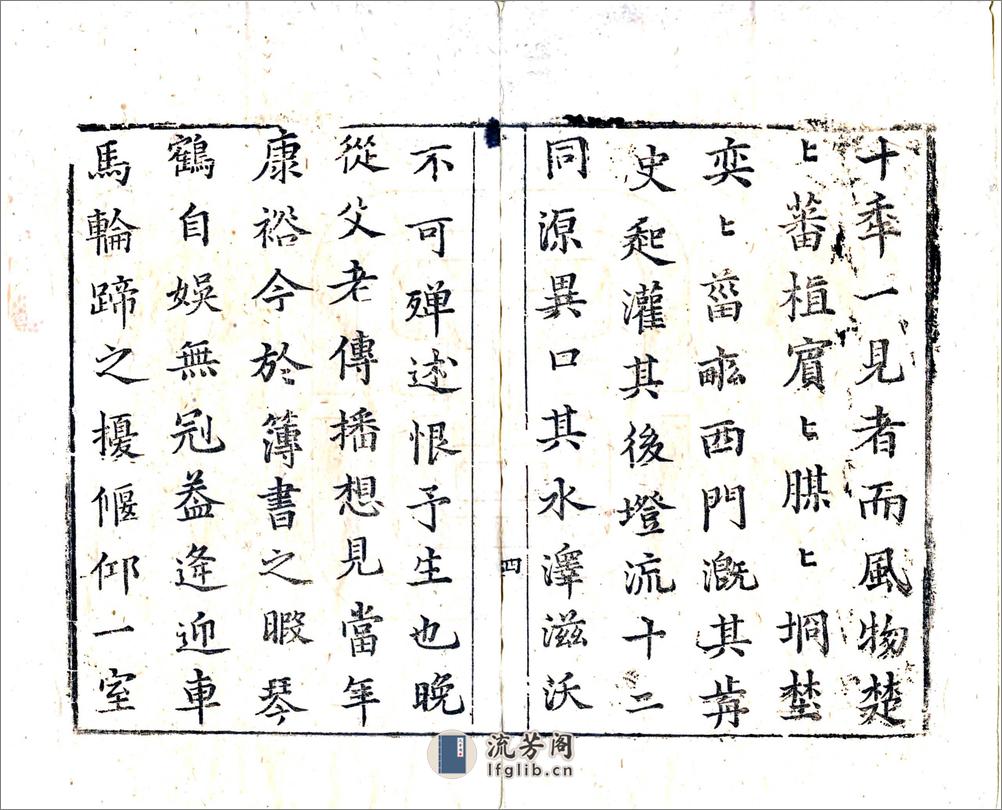 十秊一見者而風物楚
〻蕃植賓〻腜〻坰埜
奕〻菑畝西門溉其歬
史起灌其後墱流十二
同源異口其水澤滋沃
四
不可殫述恨予生也晚
從父老傳播想見當年
康裕今於簿書之暇琴
鶴自娛無冠葢逄迎車
馬輪蹄之擾偃仰一室
流芳阁
lfglib.cn